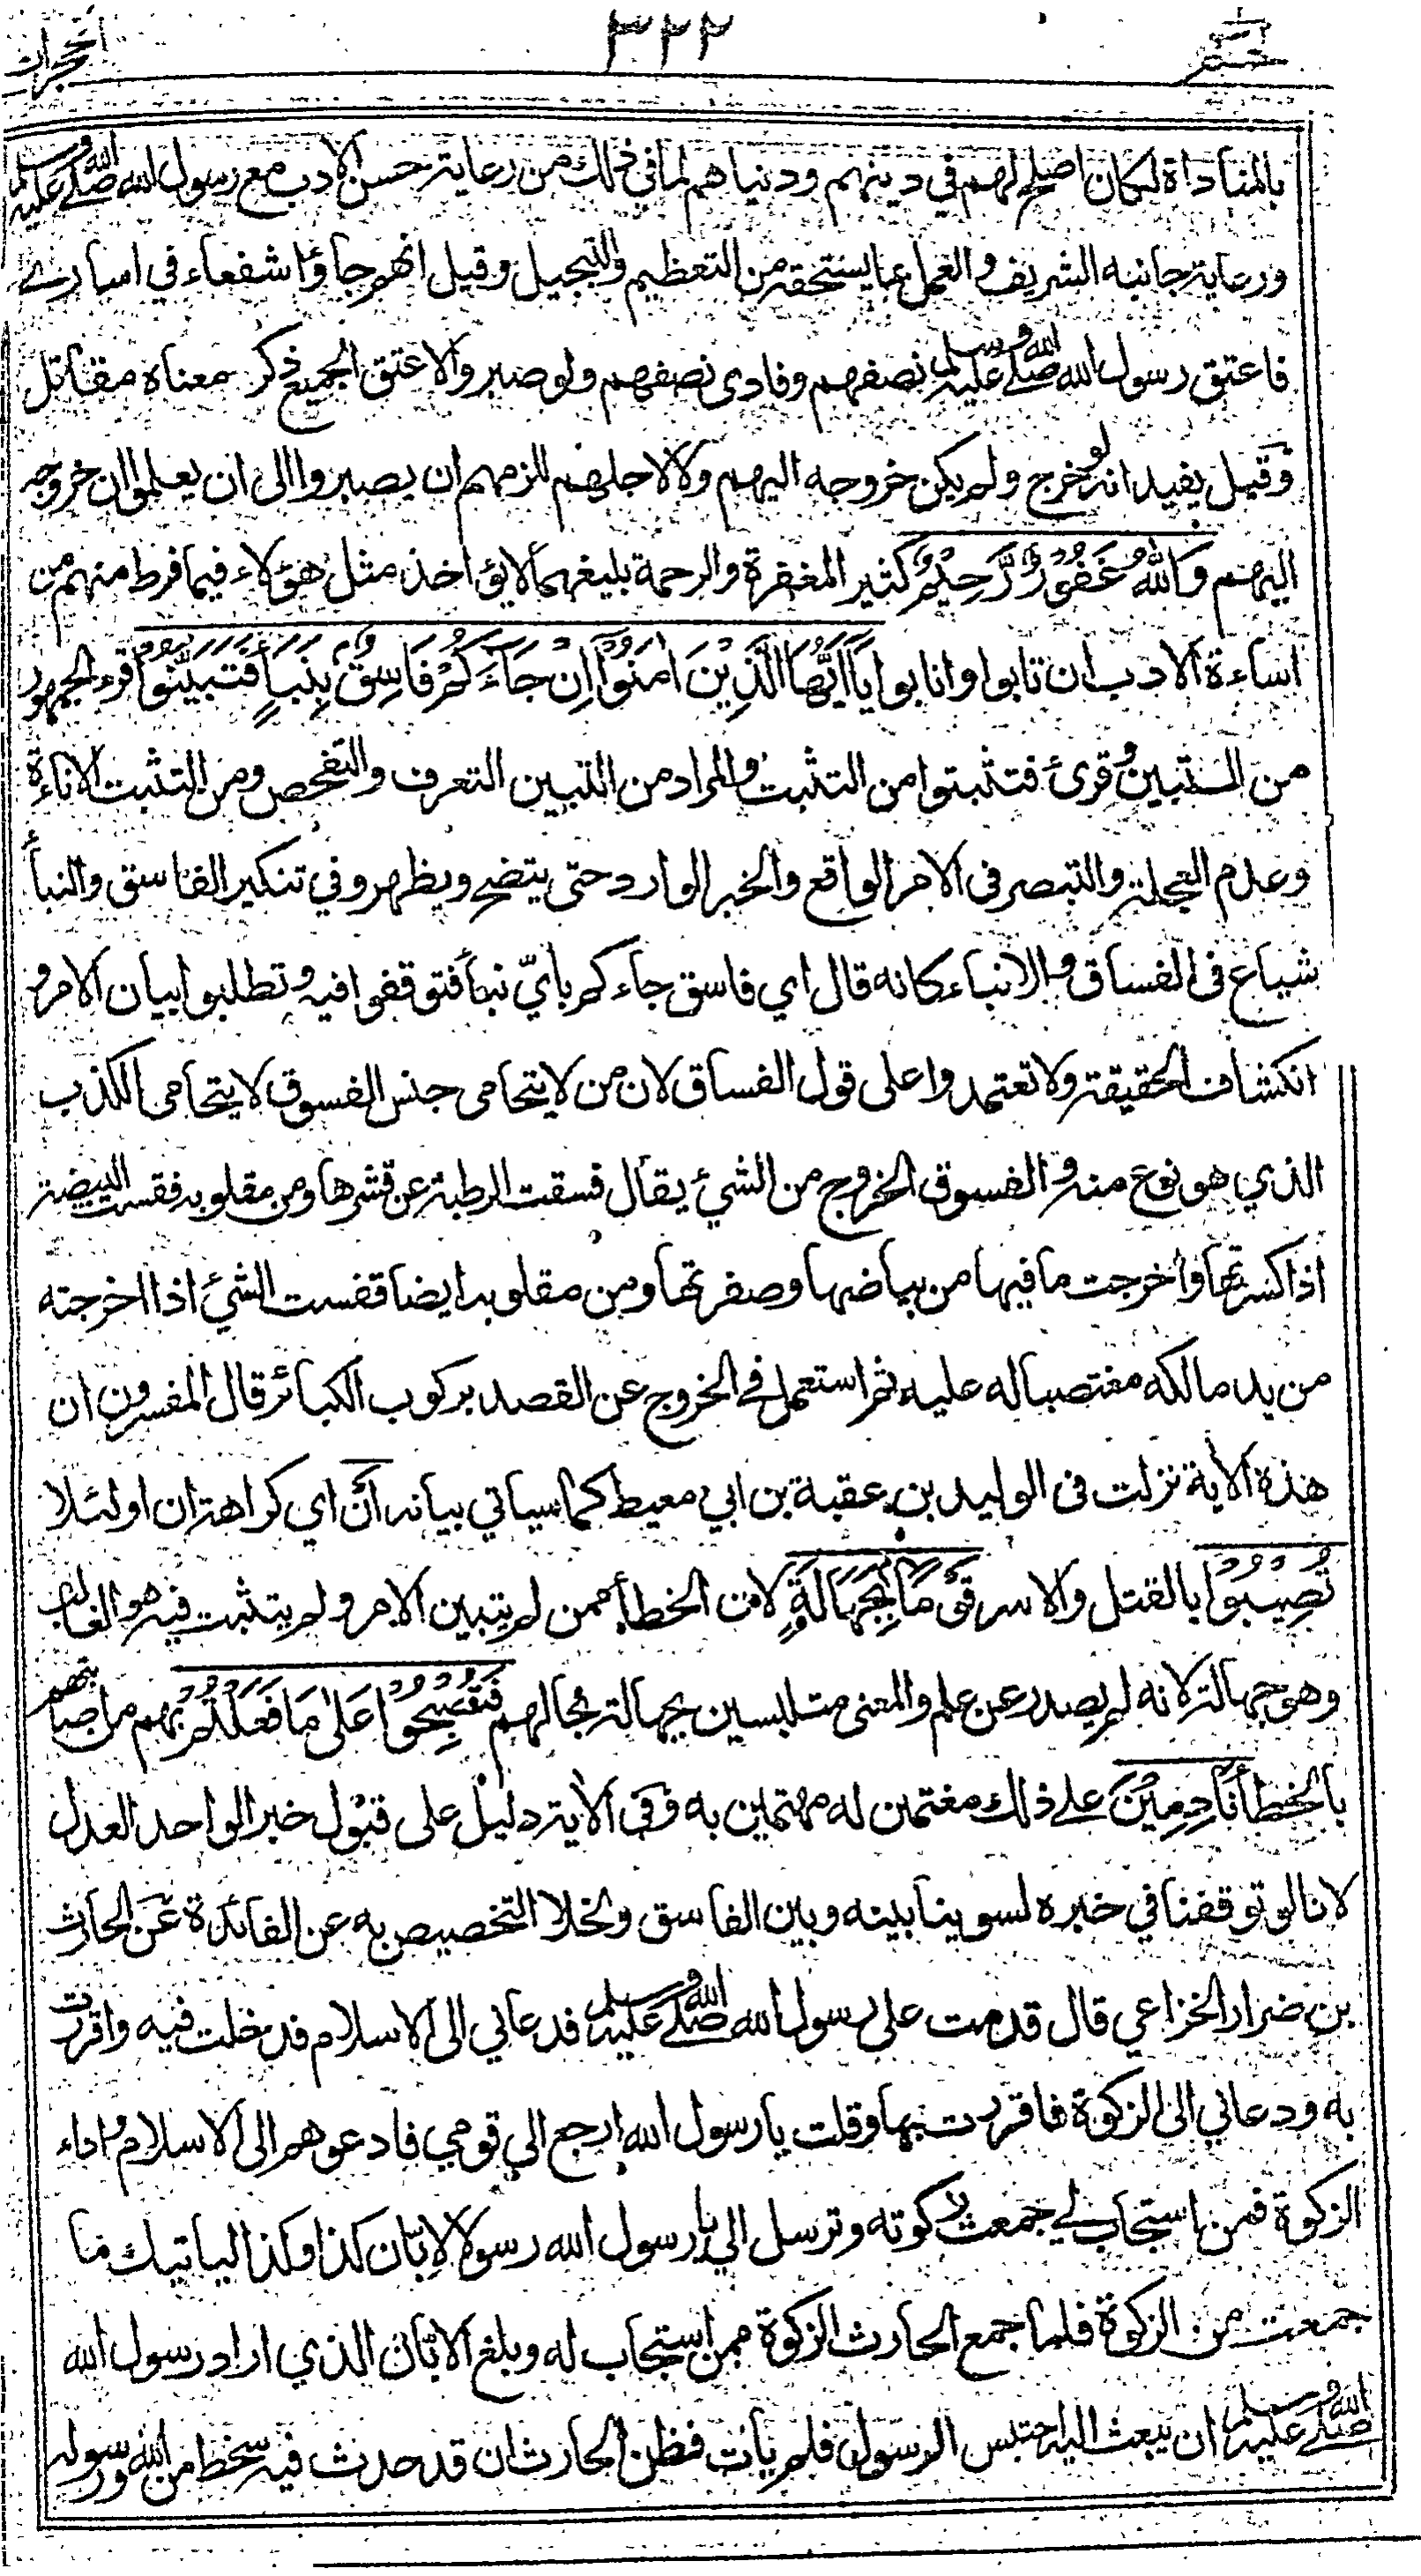 حم ٢٦ ٣٢٢ الحجرات
بالمناداة لكان اصلح لهم في دينهم ودنياهم لما في ذلك من رعاية حسن الادب مع رسول الله صلى الله عليه وسلم
ورعاية جانبه الشريف والعمل بما يستحقه من التعظيم والتبجيل وقيل انهم جاؤا شفعاء في اسارى
فاعتق رسول الله صلى الله عليه وسلم نصفهم وفادى نصفهم ولو صبروا لاعتق الجميع ذكر معناه مقاتل
وقيل يفيد انه لو خرج ولم يكن خروجه اليهم ولا لاجلهم للزمهم ان يصبروا الى ان يعلموا ان خروجه
اليهم وَاللّٰهُ غَفُوْرٌ رَّحِيْمٌ كثير المغفرة والرحمة بليغهما لا يؤاخذ مثل هؤلاء فيما فرط منهم من
اساءة الادب ان تابوا وانابوا يَا اَيُّهَا الَّذِيْنَ اٰمَنُوْا اِنْ جَآءَكُمْ فَاسِقٌ بِنَبَأٍ فَتَبَيَّنُوْا قرء الجمهور
من التبين وقرئ فتثبتوا من التثبت والمراد من التبين التعرف والتفحص ومن التثبت الاناءة
وعدم العجلة والتبصر فى الامر الواقع والخبر الوارد حتى يتضح ويظهر وفي تنكير الفاسق والنبأ
شياع فى الفساق والانباء كانه قال اي فاسق جاءكم بأيّ نبأ فتوقفوا فيه وتطلبوا بيان الامر و
انكشاف الحقيقة ولا تعتمدوا على قول الفساق لان من لا يتحامى جنس الفسوق لا يتحامى الكذب
الذي هو نوع منه والفسوق الخروج من الشئ يقال فسقت الرطبة عن قشرها ومن مقلوبه فقست البيضة
اذا كسرتها واخرجت ما فيها من بياضها وصفرتها ومن مقلوبه ايضا قفست الشئ اذا اخرجته
من يد مالكه مغتصبا له عليه ثم استعمل في الخروج عن القصد بركوب الكبائر قال المفسرون ان
هذه الاية نزلت فى الوليد بن عقبة بن ابي معيط كما سياتي بيانه اَنْ اي كراهة ان او لئلا
تُصِيْبُوْا بالقتل والاسر قَوْمًا بِجَهَالَةٍ لان الخطأ ممن لم يتبين الامر ولم يتثبت فيه هو الغالب
وهو جهالة لانه لم يصدر عن علم والمعنى متلبسين بجهالة بحالهم فَتُصْبِحُوْا عَلٰى مَا فَعَلْتُمْ بهم من اصابتهم
بالخطأ نَادِمِيْنَ على ذلك مغتمين له مهتمين به وفى الاية دليل على قبول خبر الواحد العدل
لانا لو توقفنا في خبره لسوينا بينه وبين الفاسق ولخلا التخصيص به عن الفائدة عن الحارث
بن ضرار الخزاعي قال قدمت على رسول الله صلى الله عليه وسلم فدعاني الى الاسلام فدخلت فيه واقررت
به ودعاني الى الزكوة فاقررت بها وقلت يا رسول الله ارجع الى قومي فادعوهم الى الاسلام واداء
الزكوة فمن استجاب لي جمعت زكوته وترسل الي يا رسول الله رسولا لابّان كذا وكذا لياتيك ما
جمعت من الزكوة فلما جمع الحارث الزكوة ممن استجاب له وبلغ الابّان الذي اراد رسول الله
صلى الله عليه وسلم ان يبعث اليه احتبس الرسول فلم يأت فظن الحارث ان قد حدث فيه سخط من الله ورسوله